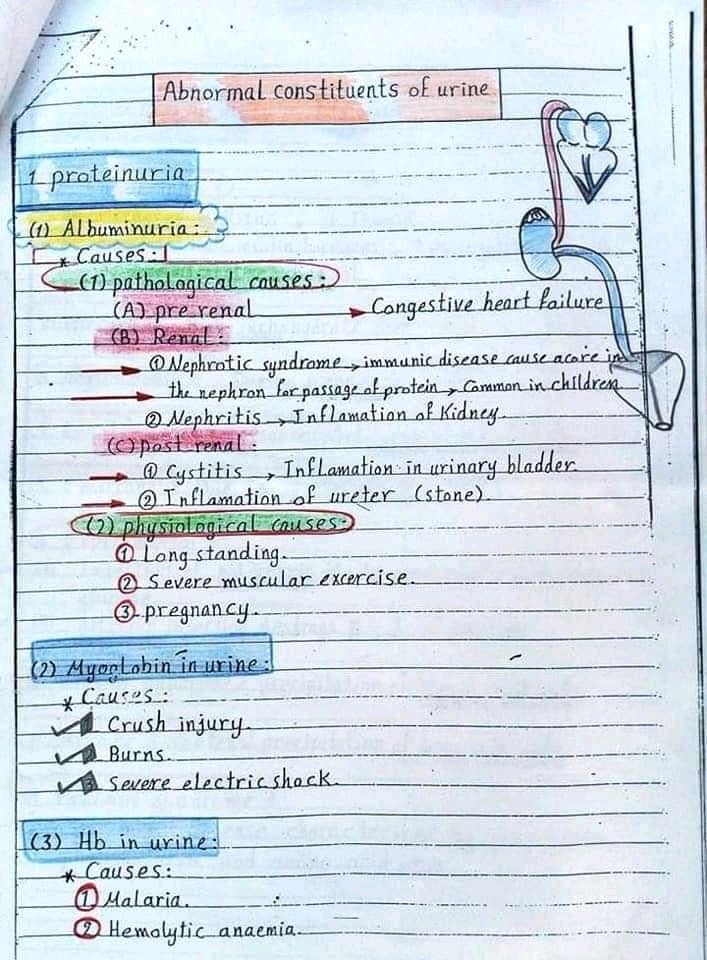 Abnormal constituents of urine
1 proteinuria
(1) Albuminuria:
* Causes:
(1) pathological causes:
(A) pre renal → Congestive heart failure
(B) Renal:
→ ① Nephrotic syndrome → immunic disease cause acore in
→ the nephron for passage of protein → Common in children
② Nephritis → Inflamation of Kidney.
(C) post renal:
→ ① Cystitis → Inflamation in urinary bladder
→ ② Inflamation of ureter (stone)
(2) physiological causes:
① Long standing.
② Severe muscular excercise.
③ pregnancy.
(2) Myoglobin in urine:
* Causes:
Crush injury.
Burns.
Severe electric shock.
(3) Hb in urine:
* Causes:
① Malaria.
② Hemolytic anaemia.